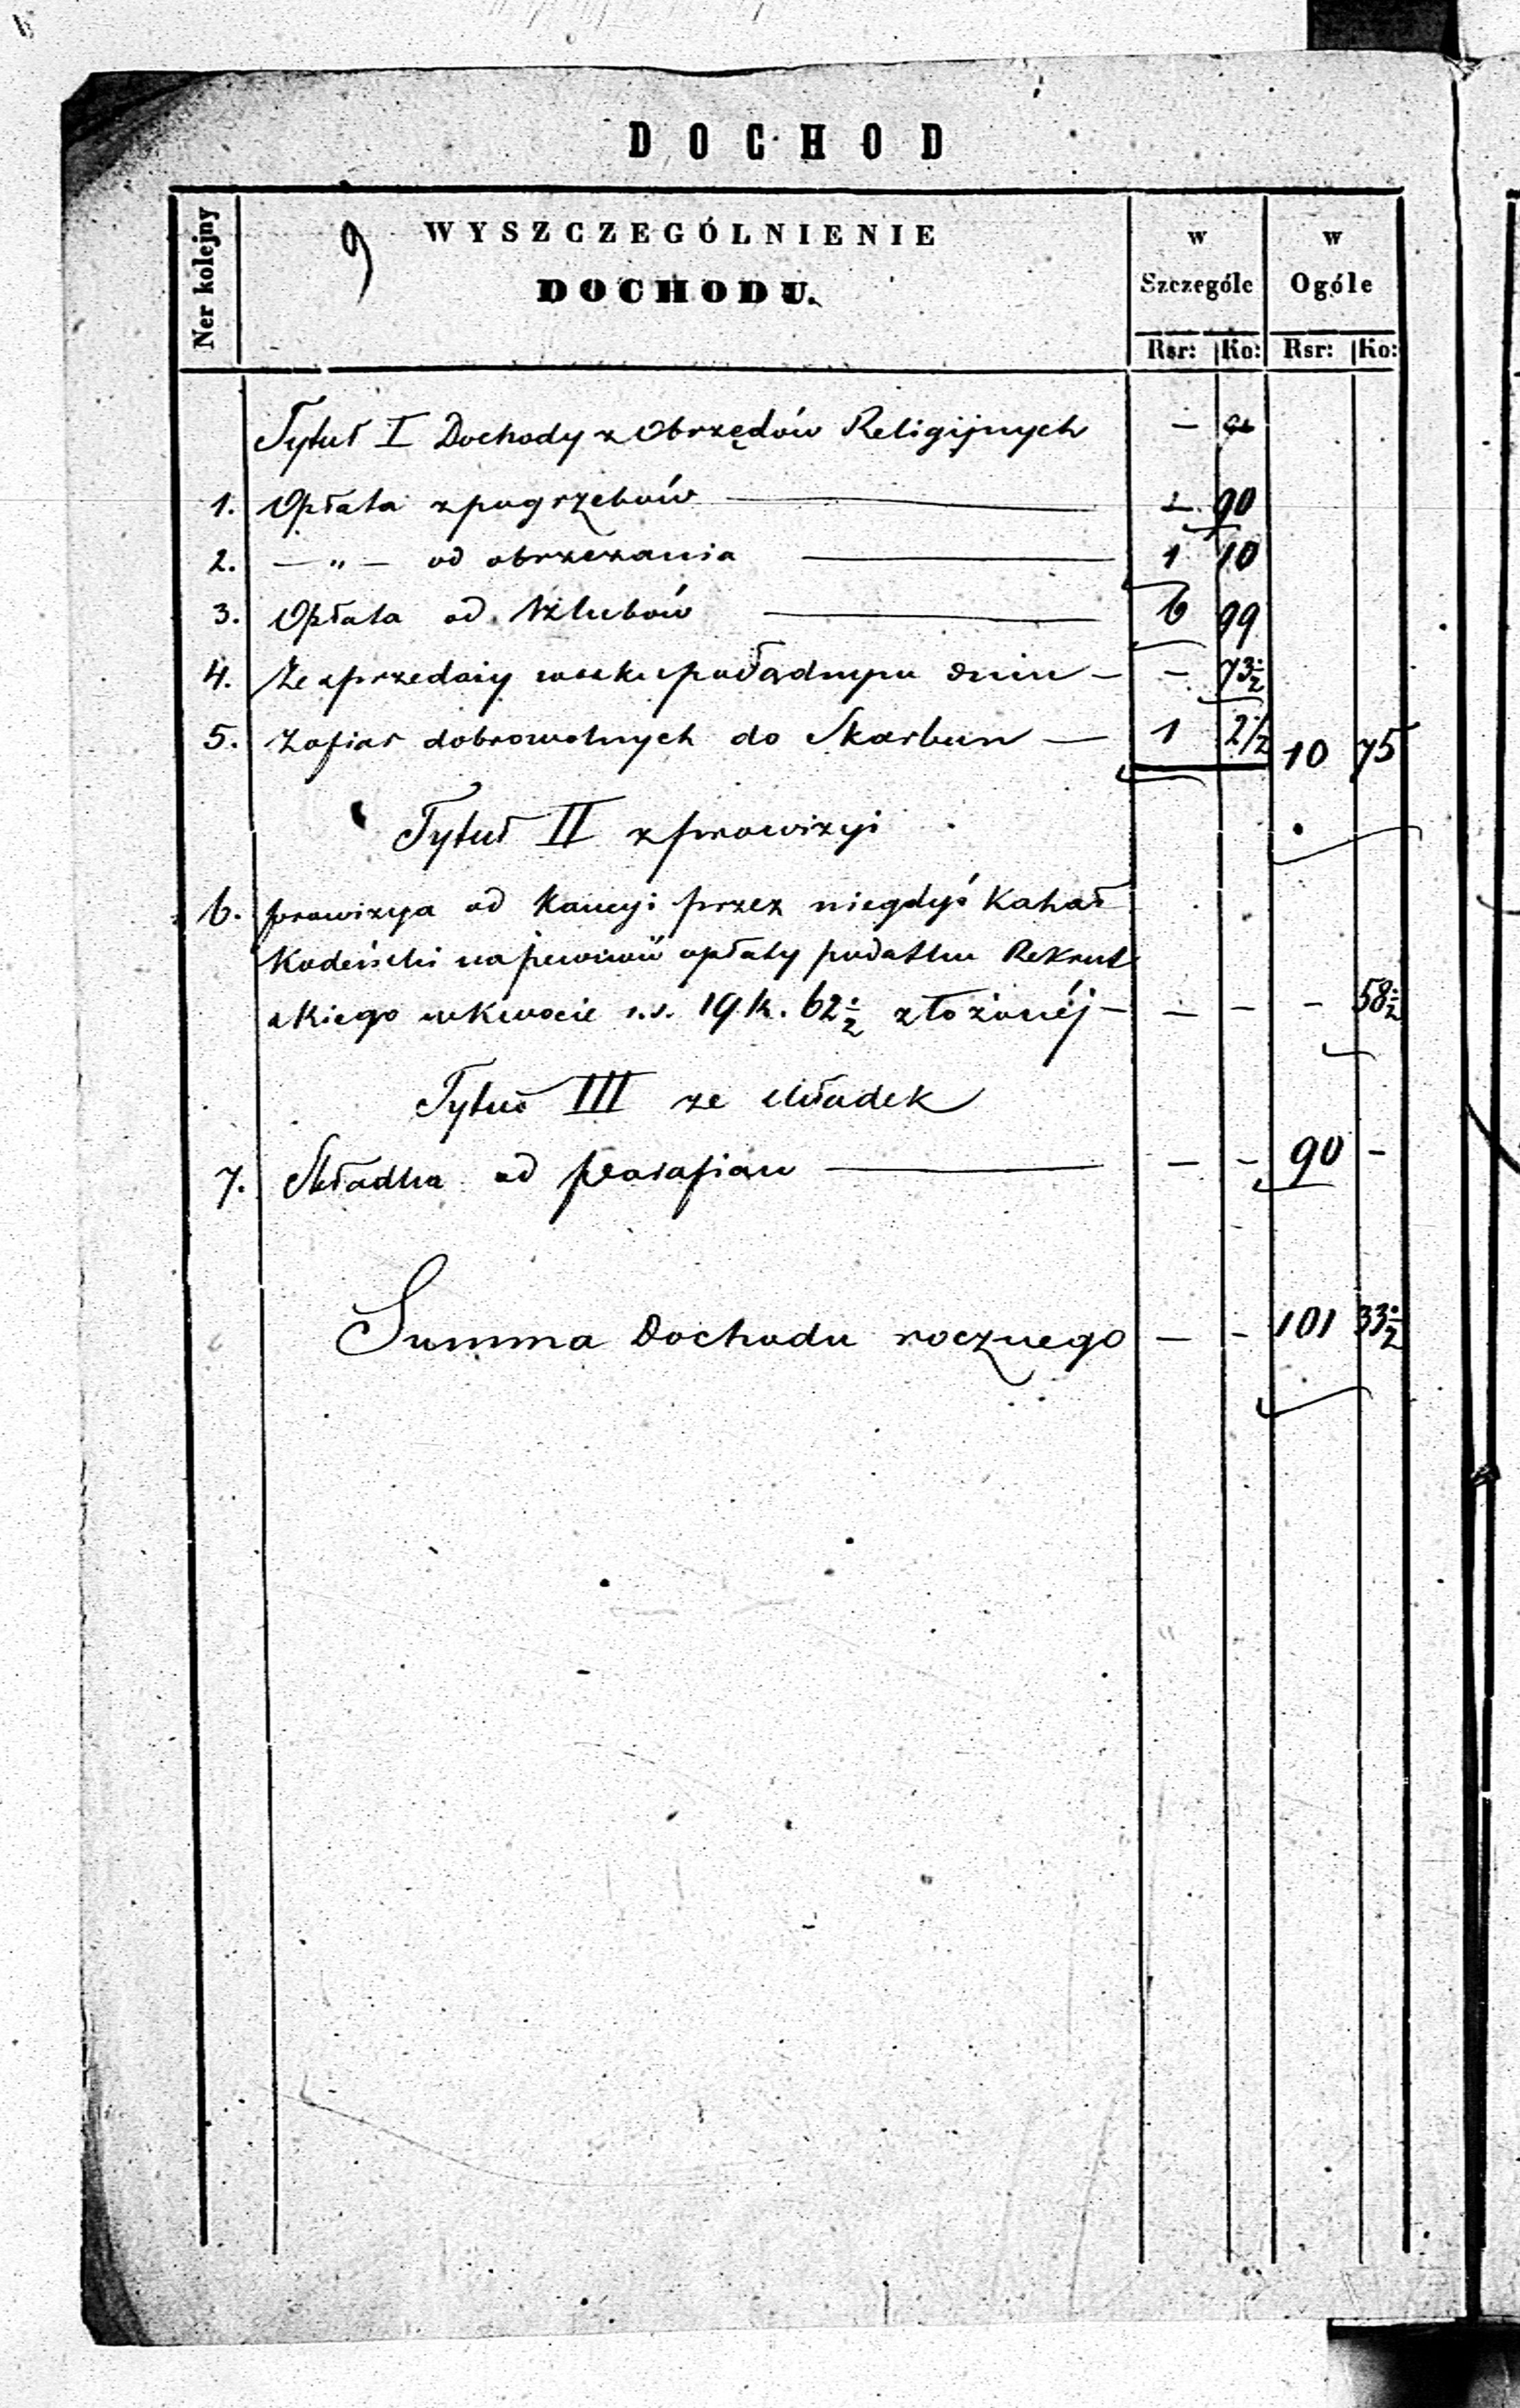 DOCHOD
Ner kolejny
WYSZCZEGÓLNIENIE
DOCHODU.
w Szczególe
w Ogóle
Rsr: Ko: Rsr: Ko:
Tytuł I Dochody z Obrzędów Religijnych —
1. Opłata z pogrzebów — — 90
2. — „ — od obrzezania — 1 10
3. Opłata od szlubów — 6 99
4. Ze sprzedaży dniu — — 73½
5. Z ofiar dobrowolnych do Skarbun — 1 2½ 10 75
Tytuł II z prowizyi
6. prowizya od Kaucyi przez niegdyś Kahał
Kodeński na pewność opłaty podatku Rekrut
skiego w kwocie r.s. 19 k. 62½ złożonéj — — — — 58½
Tytuł III ze składek
7. Składka od parafian — — — 90 —
Summa Dochodu rocznego — — 101 33½